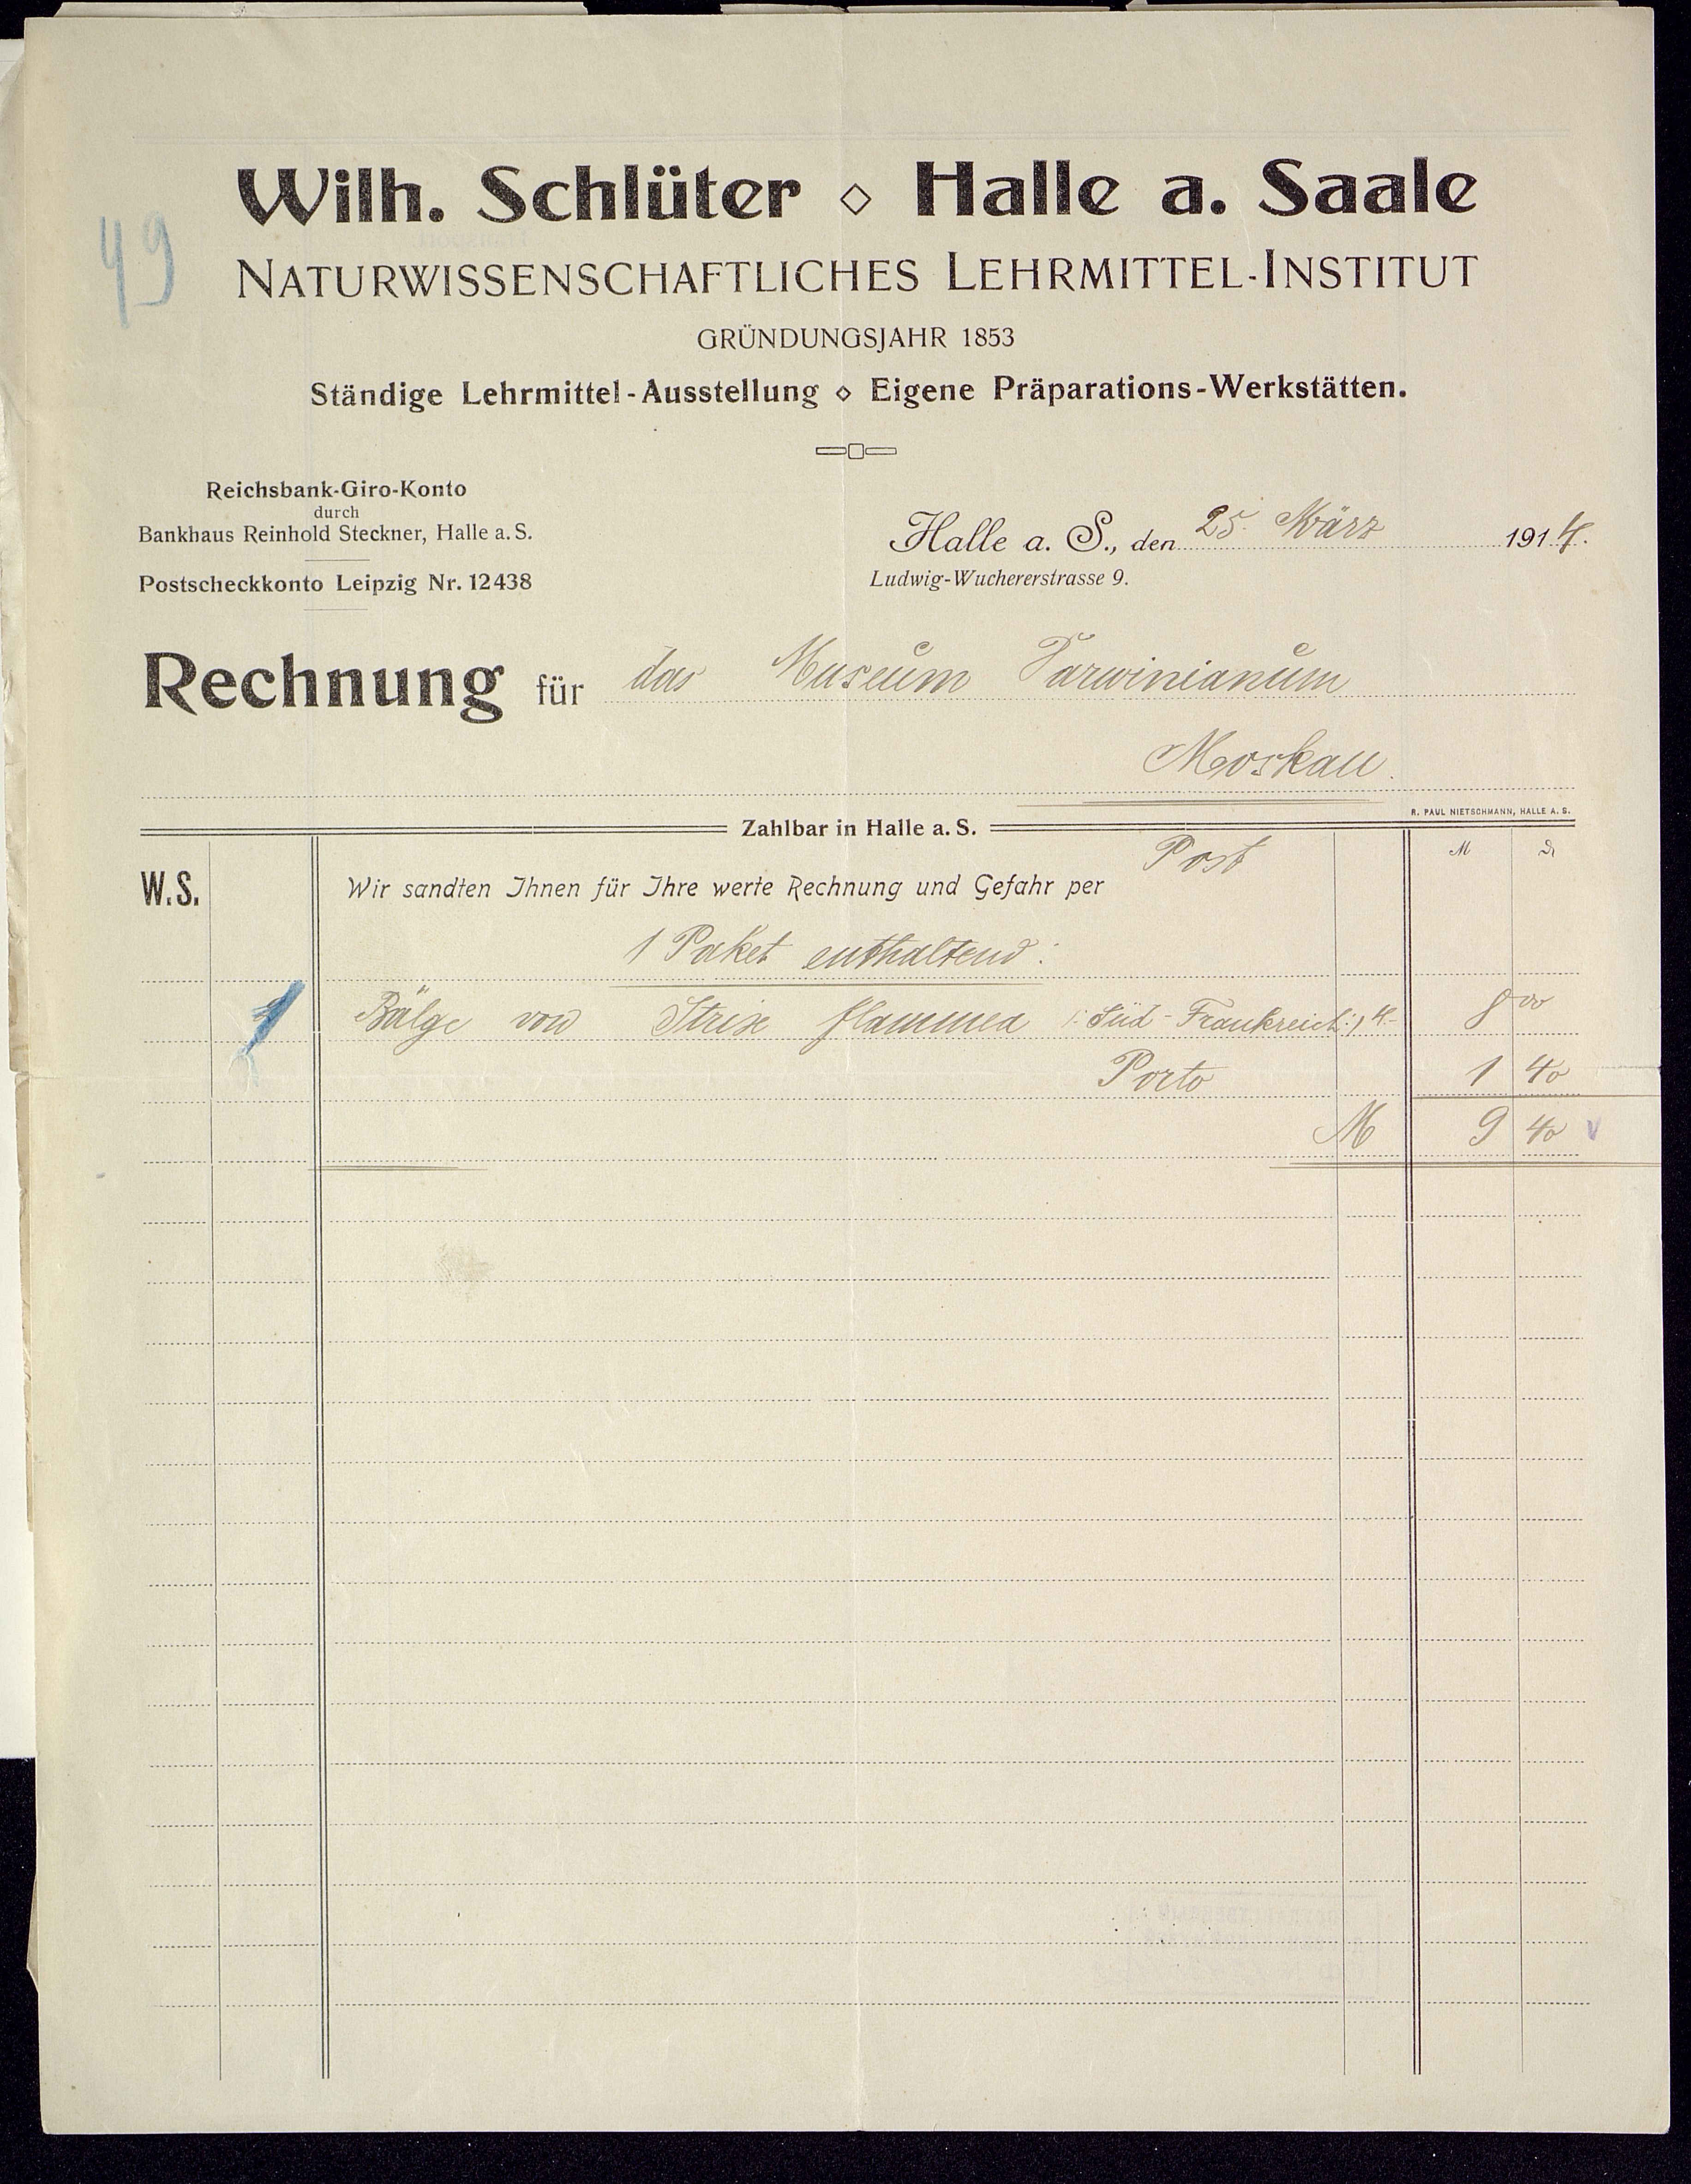 Wilh. Schlüter ◇ Halle a. Saale
49
NATURWISSENSCHAFTLICHES LEHRMITTEL-INSTITUT
GRÜNDUNGSJAHR 1853
Ständige Lehrmittel-Ausstellung ◇ Eigene Präparations-Werkstätten.
Reichsbank-Giro-Konto
durch
Bankhaus Reinhold Steckner, Halle a. S.
Postscheckkonto Leipzig Nr. 12438
Halle a. S., den 25. März 1914.
Ludwig-Wuchererstrasse 9.
Rechnung für das Museum Darwinianum
Moskau.
R. PAUL NIETSCHMANN, HALLE A. S.
Zahlbar in Halle a. S.
M
W.S. Wir sandten Ihnen für Ihre werte Rechnung und Gefahr per Post
1 Paket enthaltend:
Bälge von Strix flammea (: Süd-Frankreich :) 4.- 8 00
Porto 1 40
M 9 40 v